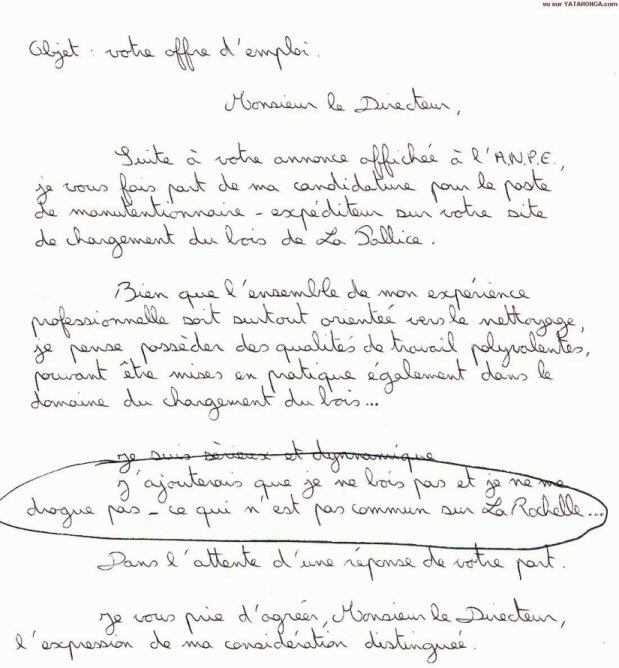 vu sur YATAHONGA.com
Objet : votre offre d'emploi.
Monsieur le Directeur,
Suite à votre annonce affichée à l'A.N.P.E.,
je vous fais part de ma candidature pour le poste
de manutentionnaire - expéditeur sur votre site
de chargement du bois de La Pallice.
Bien que l'ensemble de mon expérience
professionnelle soit surtout orientée vers le nettoyage,
je pense possèder des qualités de travail polyvalentes,
pouvant être mises en pratique également dans le
domaine du chargement du bois...
je suis sèrieux et dynnamique
J'ajouterais que je ne bois pas et je ne me
drogue pas - ce qui n'est pas commun sur La Rochelle...
Dans l'attente d'une réponse de votre part.
Je vous prie d'agréer, Monsieur le Directeur,
l'expression de ma considération distinguée.